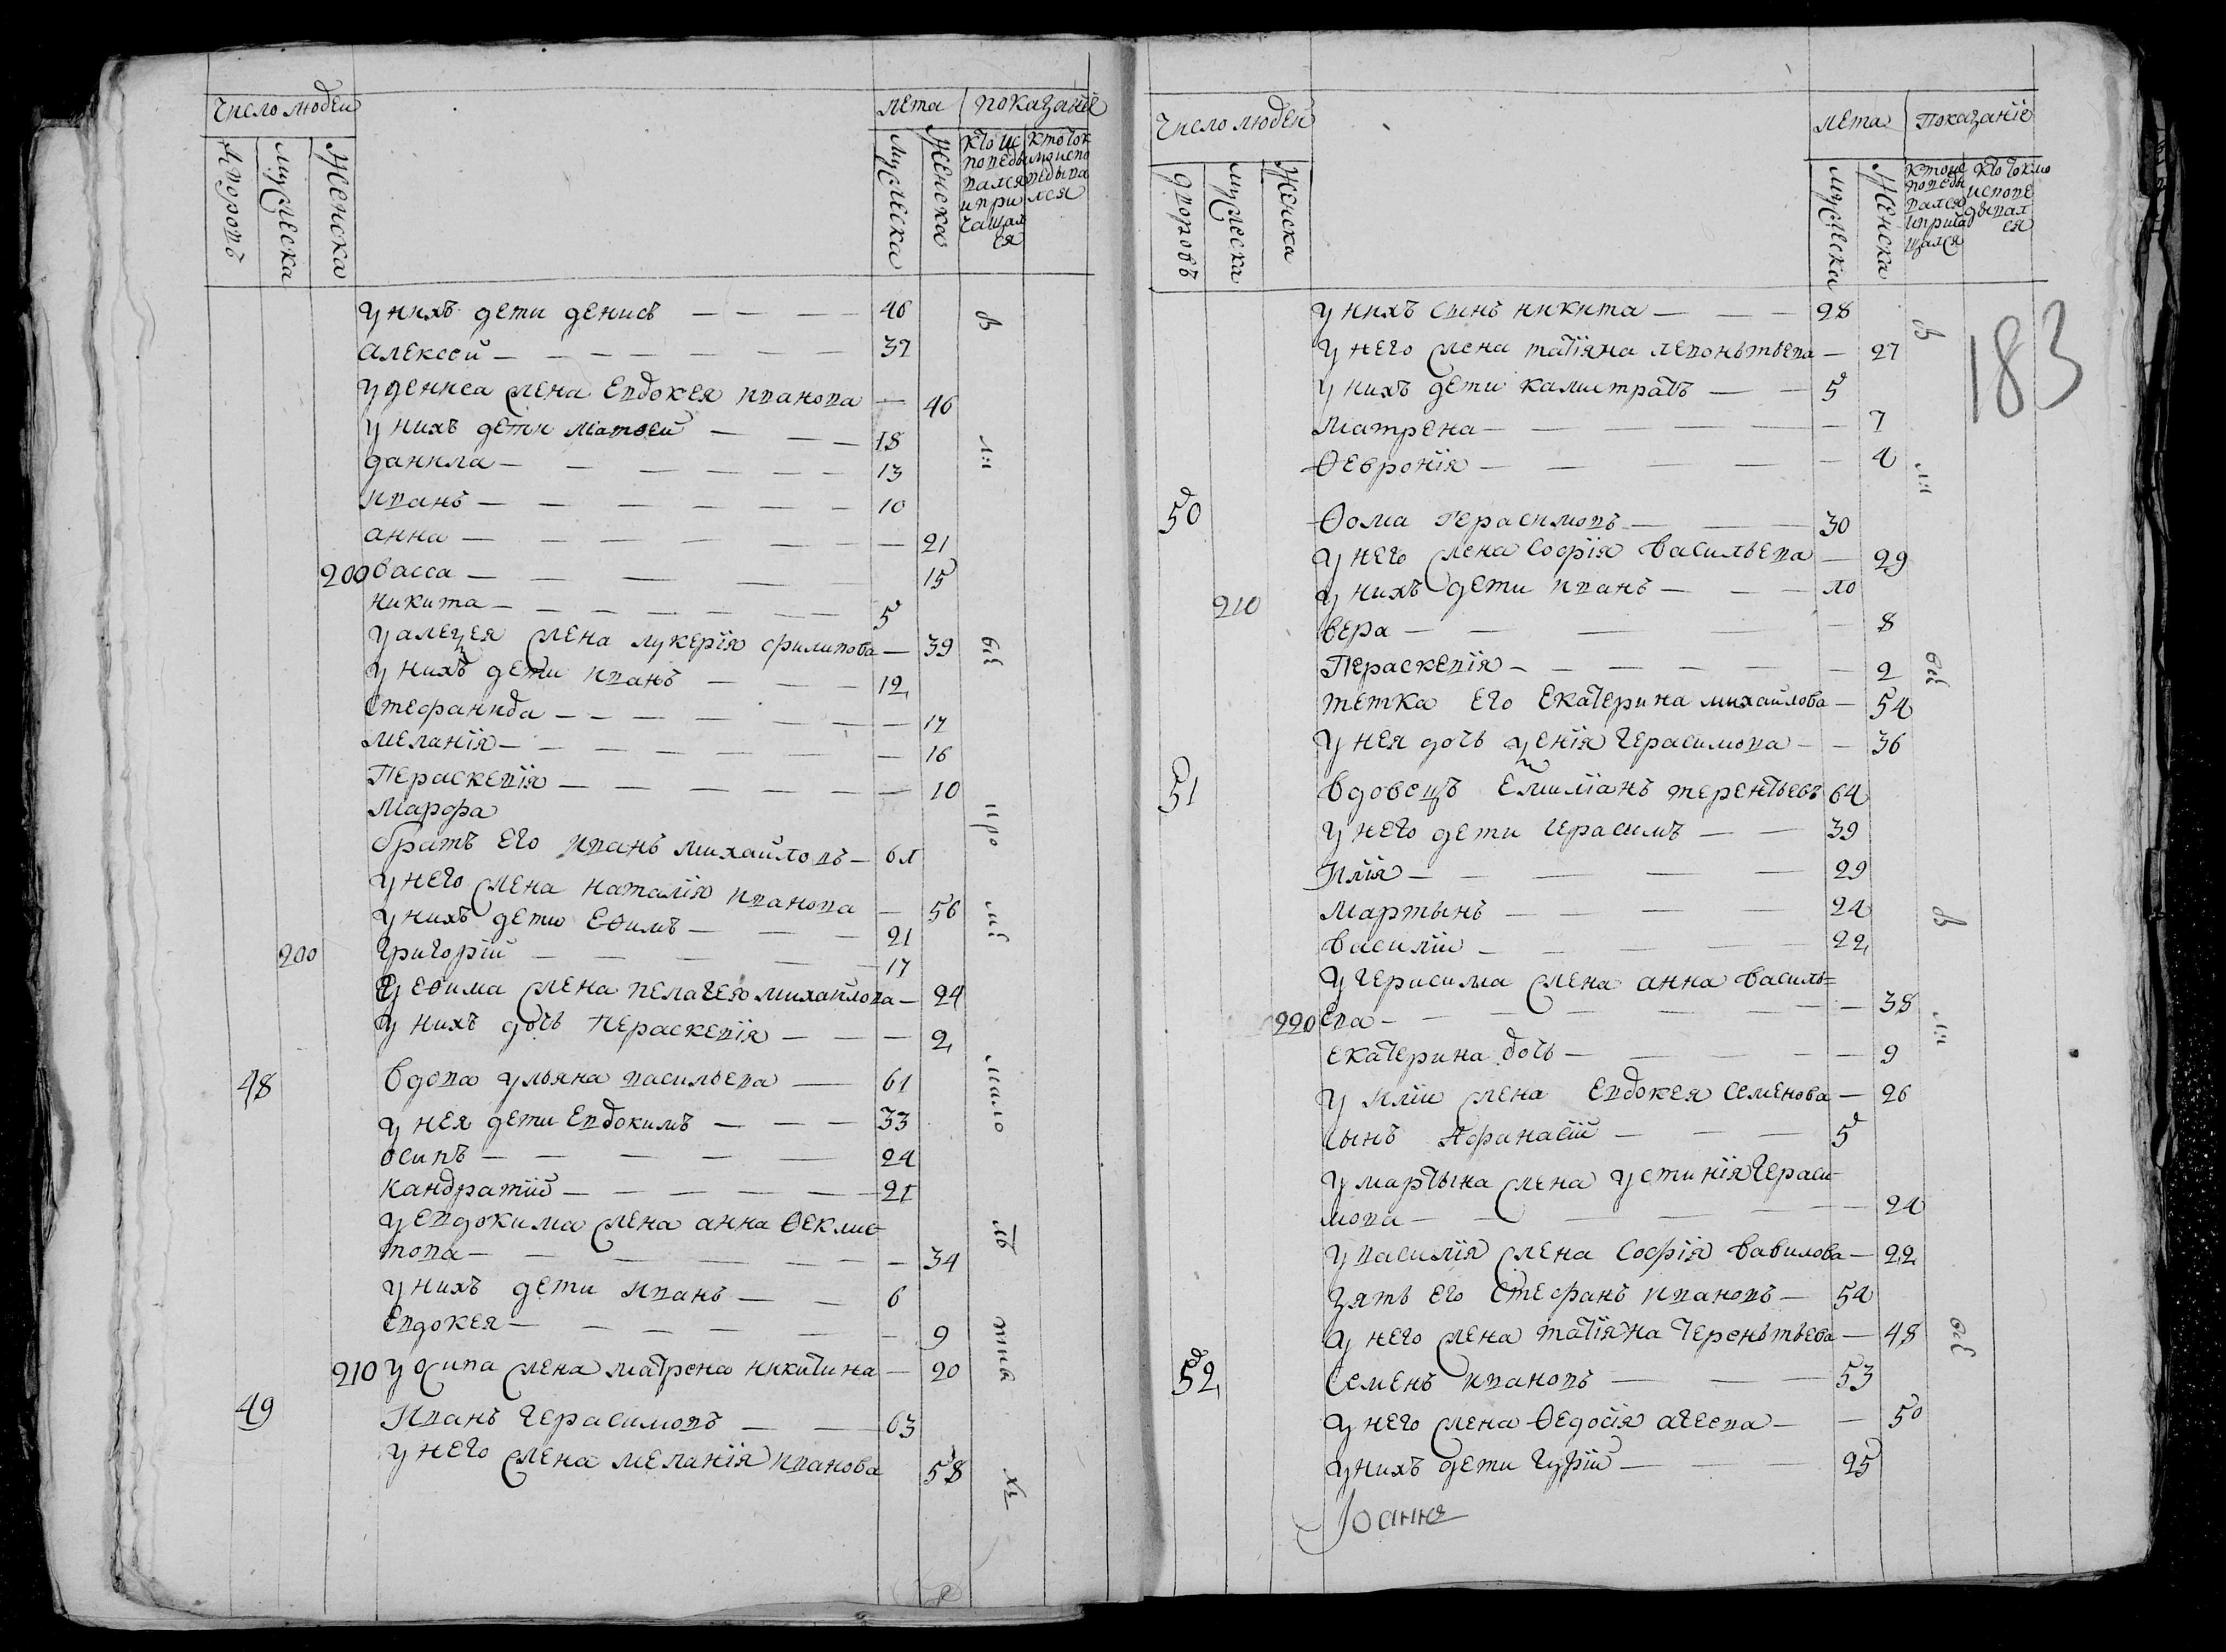 Число людей
лета показаніе
дворовъ
мужеска
женска
мужеска
женска
кто ис
поведы
вался
и при
чащал
ся
кто ток
мо испо
ведыва
лся
у нихъ дети денисъ — 40 в
алексей — 32
у дениса жена Евдокея иванова — 46
у нихъ дети матвей — 18
данила — 13
иванъ — 10
анна — 21
200 васса — 15
никита — 5
у алеѯея жена лукерія филипова — 39
у нихъ дети иванъ — 12
стефанида — 17
меланія — 16
Пераскевія — 10
Марфа
братъ его иванъ михайловъ — 61
у него жена наталія иванова — 56
у нихъ дети Еѳимъ — 21
200 григорій — 17
у еѳима жена пелагея михайлова — 24
у нихъ дочь пераскевія — 2
48 вдова ульяна васильева — 61
у нея дети Евдокимъ — 33
осипъ — 24
кандратий — 21
у евдокима жена анна ѳеклис-
това — 34
у нихъ дети иванъ — 6
Евдокея — 9
210 у осипа жена матрена никитина — 20
49 Иванъ герасимовъ — 63
у него жена меланія иванова 58
Число людей
лета Показаніе
дворовъ
мужеска
женска
мужеска
женска
кто ис
поведы
вался
и прича
щался
кто токмо
испове
дывал
ся
183
у нихъ сынъ никита — 28 в
у него жена татіяна левонтьева — 27
у нихъ дети калистратъ — 5
матрена — 7
ѳевронія — 4
50 ѳома герасимовъ — 30
у него жена софія васильева — 29
210 у нихъ дети иванъ — 10
вера — 8
Пераскевія — 2
тетка его екатерина михайлова — 54
у нея дочь ѯенія герасимова — 36
51 вдовецъ емиліанъ терентьевъ 64
у него дети герасимъ — 39
илія — 29
мартынъ — 24 в
василии — 22
у герасима жена анна василь=
220 ева — 38
екатерина дочь — 9
у иліи жена евдокея семенова — 26
сынъ Афанасій — 5
у мартына жена устинія гераси-
мова — 24
у василія жена софія вавилова — 22
зять его стефанъ ивановъ — 54
у него жена татіяна терентьева — 48
52 семенъ ивановъ — 53
у него жена ѳедосія агеева — 50
у нихъ дети гурій — 25
Іоанна